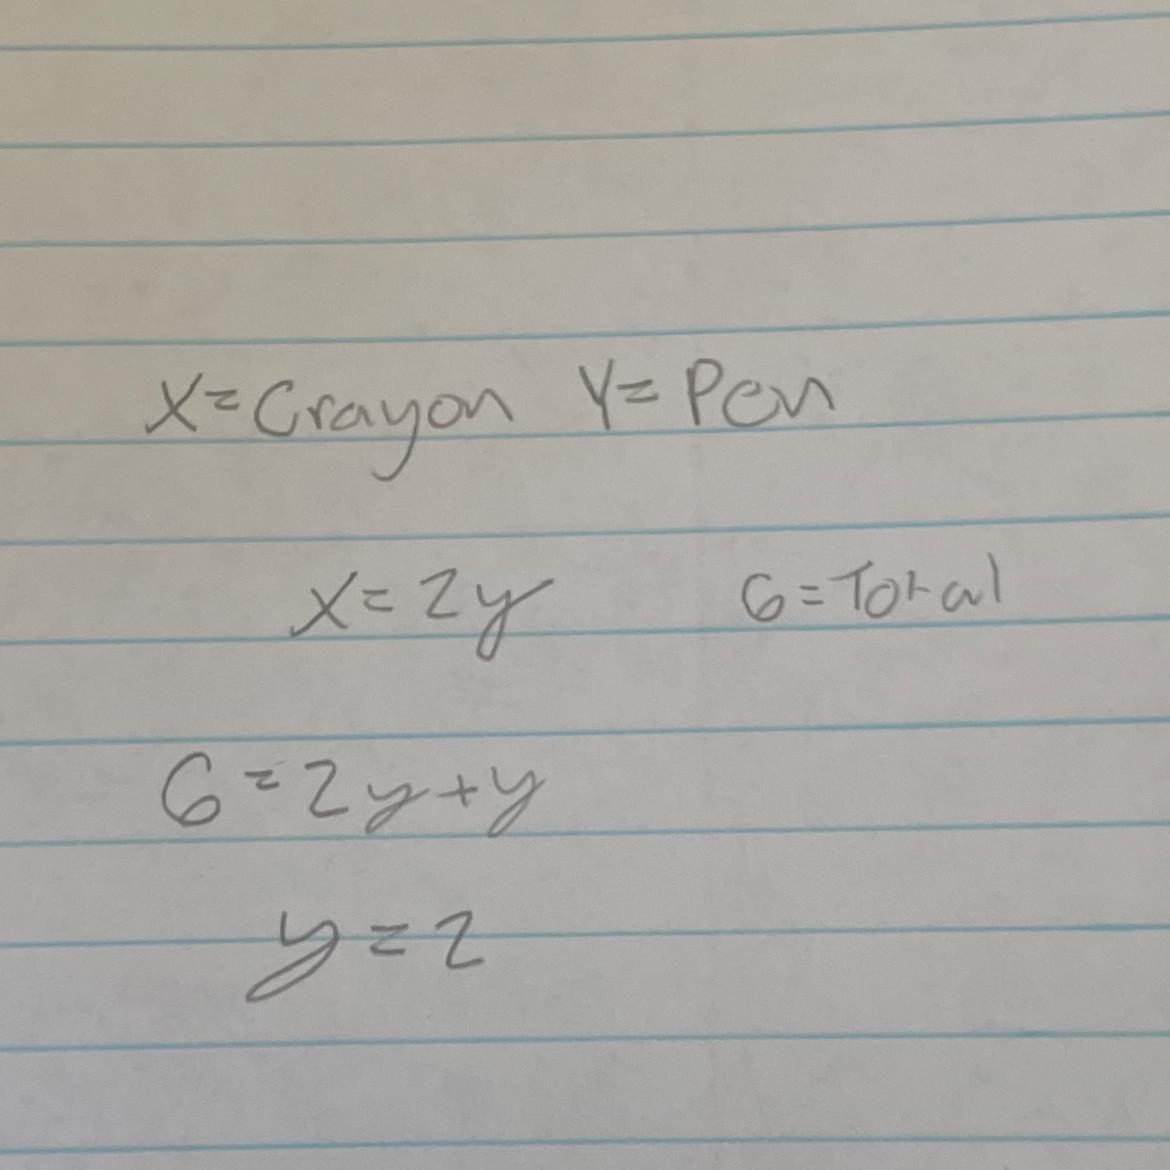 X=Crayon Y=Pen
x=2y 6=Total
6=2y+y
y=2